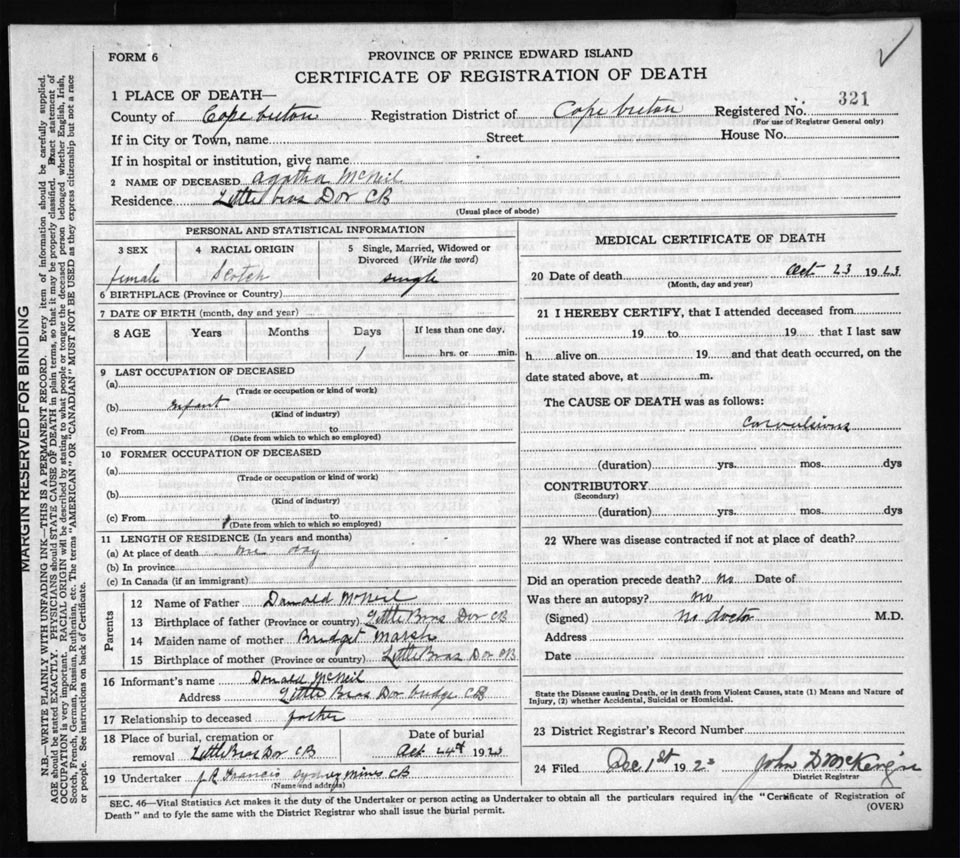 FORM 6
PROVINCE OF PRINCE EDWARD ISLAND
CERTIFICATE OF REGISTRATION OF DEATH
1 PLACE OF DEATH—
County of Cape breton Registration District of Cape breton Registered No. 321
(For use of Registrar General only)
If in City or Town, name Street House No.
If in hospital or institution, give name
2 NAME OF DECEASED Agatha McNeil
Residence Little bras Dor CB
(Usual place of abode)
PERSONAL AND STATISTICAL INFORMATION
3 SEX 4 RACIAL ORIGIN 5 Single, Married, Widowed or Divorced (Write the word)
female Scotch single
6 BIRTHPLACE (Province or Country)
7 DATE OF BIRTH (month, day and year)
8 AGE Years Months Days If less than one day,
1 hrs. or min.
9 LAST OCCUPATION OF DECEASED
(a)
(Trade or occupation or kind of work)
(b) infant
(Kind of industry)
(c) From to
(Date from which to which so employed)
10 FORMER OCCUPATION OF DECEASED
(a)
(Trade or occupation or kind of work)
(b)
(Kind of industry)
(c) From to
(Date from which to which so employed)
11 LENGTH OF RESIDENCE (In years and months)
(a) At place of death one day
(b) In province
(c) In Canada (if an immigrant)
Parents
12 Name of Father Donald McNeil
13 Birthplace of father (Province or country) Little Bras Dor CB
14 Maiden name of mother Bridget Marsh
15 Birthplace of mother (Province or country) Little Bras Dor CB
16 Informant's name Donald McNeil
Address Little Bras Dor bridge CB
17 Relationship to deceased father
18 Place of burial, cremation or removal Little Bras Dor CB
Date of burial
Oct 24th 1923
19 Undertaker J.R. Francis Sydney Mines CB
(Name and address)
MEDICAL CERTIFICATE OF DEATH
20 Date of death Oct 23 1923
(Month, day and year)
21 I HEREBY CERTIFY, that I attended deceased from
19 to 19 that I last saw
h alive on 19 and that death occurred, on the
date stated above, at m.
The CAUSE OF DEATH was as follows:
Convulsions
(duration) yrs. mos. dys
CONTRIBUTORY
(Secondary)
(duration) yrs. mos. dys
22 Where was disease contracted if not at place of death?
Did an operation precede death? No Date of
Was there an autopsy? No
(Signed) No doctor M.D.
Address
Date
State the Disease causing Death, or in death from Violent Causes, state (1) Means and Nature of
Injury, (2) whether Accidental, Suicidal or Homicidal.
23 District Registrar's Record Number
24 Filed Dec 1st 1923 John D
District Registrar
SEC. 46—Vital Statistics Act makes it the duty of the Undertaker or person acting as Undertaker to obtain all the particulars required in the "Certificate of Registration of
Death" and to fyle the same with the District Registrar who shall issue the burial permit.
(OVER)
MARGIN RESERVED FOR BINDING
N.B.—WRITE PLAINLY WITH UNFADING INK—THIS IS A PERMANENT RECORD. Every item of information should be carefully supplied.
AGE should be stated EXACTLY. PHYSICIANS should STATE CAUSE OF DEATH in plain terms, so that it may be properly classified. Exact statement of
OCCUPATION is very important. RACIAL ORIGIN will be described by stating to what people or tongue the deceased person belonged whether English, Irish,
Scotch, French, German, Russian, Ruthenian, etc. The terms "AMERICAN" OR "CANADIAN" MUST NOT BE USED as they express citizenship but not a race
or people. See instructions on back of Certificate.